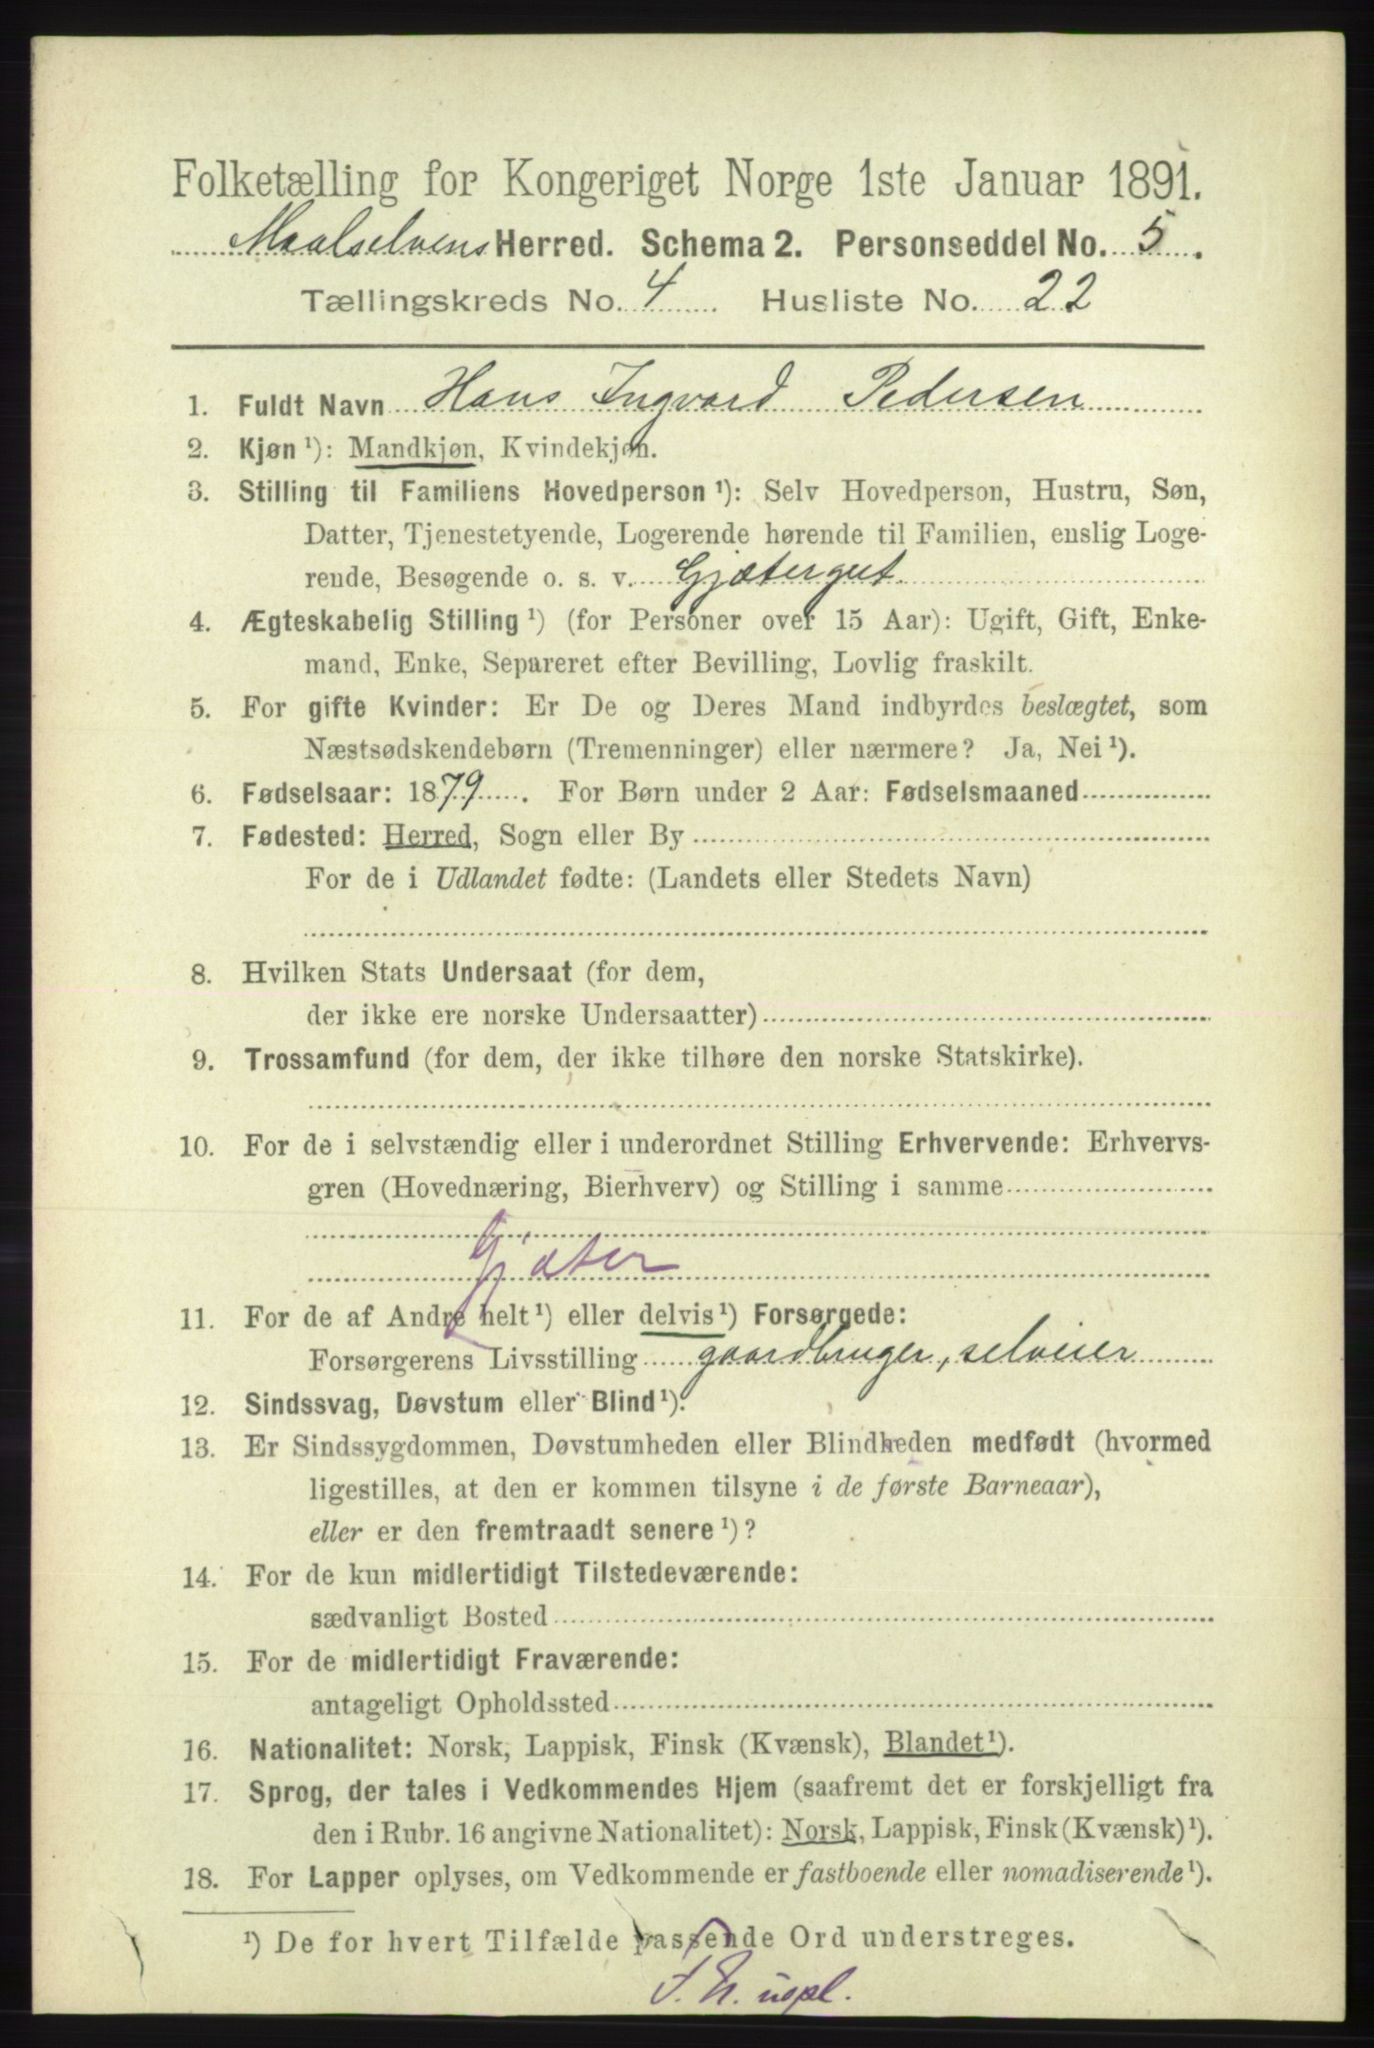 Folketælling for Kongeriget Norge 1ste Januar 1891.
Maalselvens Herred. Schema 2. Personseddel No. 5.
Tællingskreds No. 4 Husliste No. 22
1. Fuldt Navn Hans Ingvard Pedersen
2. Kjøn ¹): Mandkjøn, Kvindekjøn.
3. Stilling til Familiens Hovedperson ¹): Selv Hovedperson, Hustru, Søn,
Datter, Tjenestetyende, Logerende hørende til Familien, enslig Loge-
rende, Besøgende o. s. v. Gjætergut
4. Ægteskabelig Stilling ¹) (for Personer over 15 Aar): Ugift, Gift, Enke-
mand, Enke, Separeret efter Bevilling, Lovlig fraskilt.
5. For gifte Kvinder: Er De og Deres Mand indbyrdes beslægtet, som
Næstsødskendebørn (Tremenninger) eller nærmere? Ja, Nei ¹).
6. Fødselsaar: 1879. For Børn under 2 Aar: Fødselsmaaned
7. Fødested: Herred, Sogn eller By
For de i Udlandet fødte: (Landets eller Stedets Navn)
8. Hvilken Stats Undersaat (for dem,
der ikke ere norske Undersaatter)
9. Trossamfund (for dem, der ikke tilhøre den norske Statskirke).
10. For de i selvstændig eller i underordnet Stilling Erhvervende: Erhvervs-
gren (Hovednæring, Bierhverv) og Stilling i samme
Gjæter
11. For de af Andre helt ¹) eller delvis ¹) Forsørgede:
Forsørgerens Livsstilling gaardbruger, selveier
12. Sindssvag, Døvstum eller Blind ¹).
13. Er Sindssygdommen, Døvstumheden eller Blindheden medfødt (hvormed
ligestilles, at den er kommen tilsyne i de første Barneaar),
eller er den fremtraadt senere ¹)?
14. For de kun midlertidigt Tilstedeværende:
sædvanligt Bosted
15. For de midlertidigt Fraværende:
antageligt Opholdssted
16. Nationalitet: Norsk, Lappisk, Finsk (Kvænsk), Blandet ¹).
17. Sprog, der tales i Vedkommendes Hjem (saafremt det er forskjelligt fra
den i Rubr. 16 angivne Nationalitet): Norsk, Lappisk, Finsk (Kvænsk) ¹).
18. For Lapper oplyses, om Vedkommende er fastboende eller nomadiserende ¹).
¹) De for hvert Tilfælde passende Ord understreges.